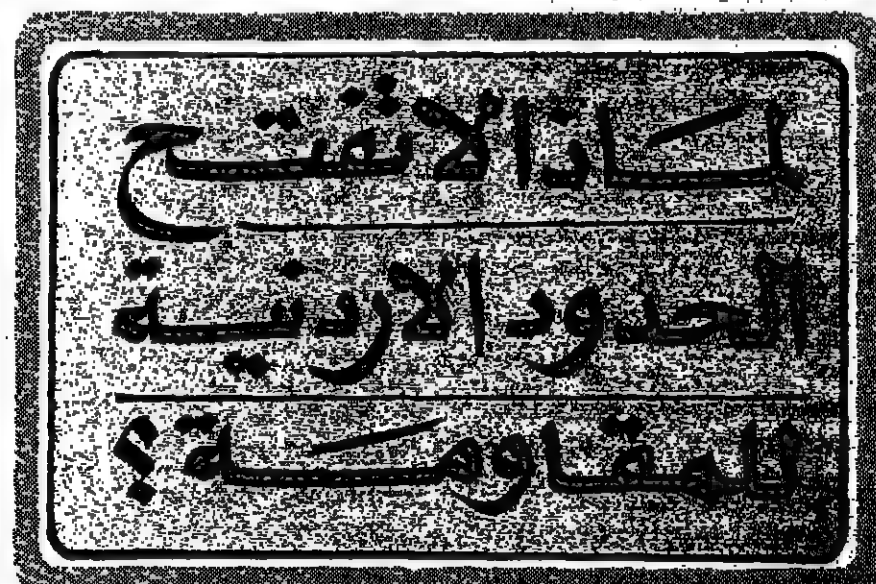 لماذا لا تفتح
الحدود الاردنية
للمقاومة ؟